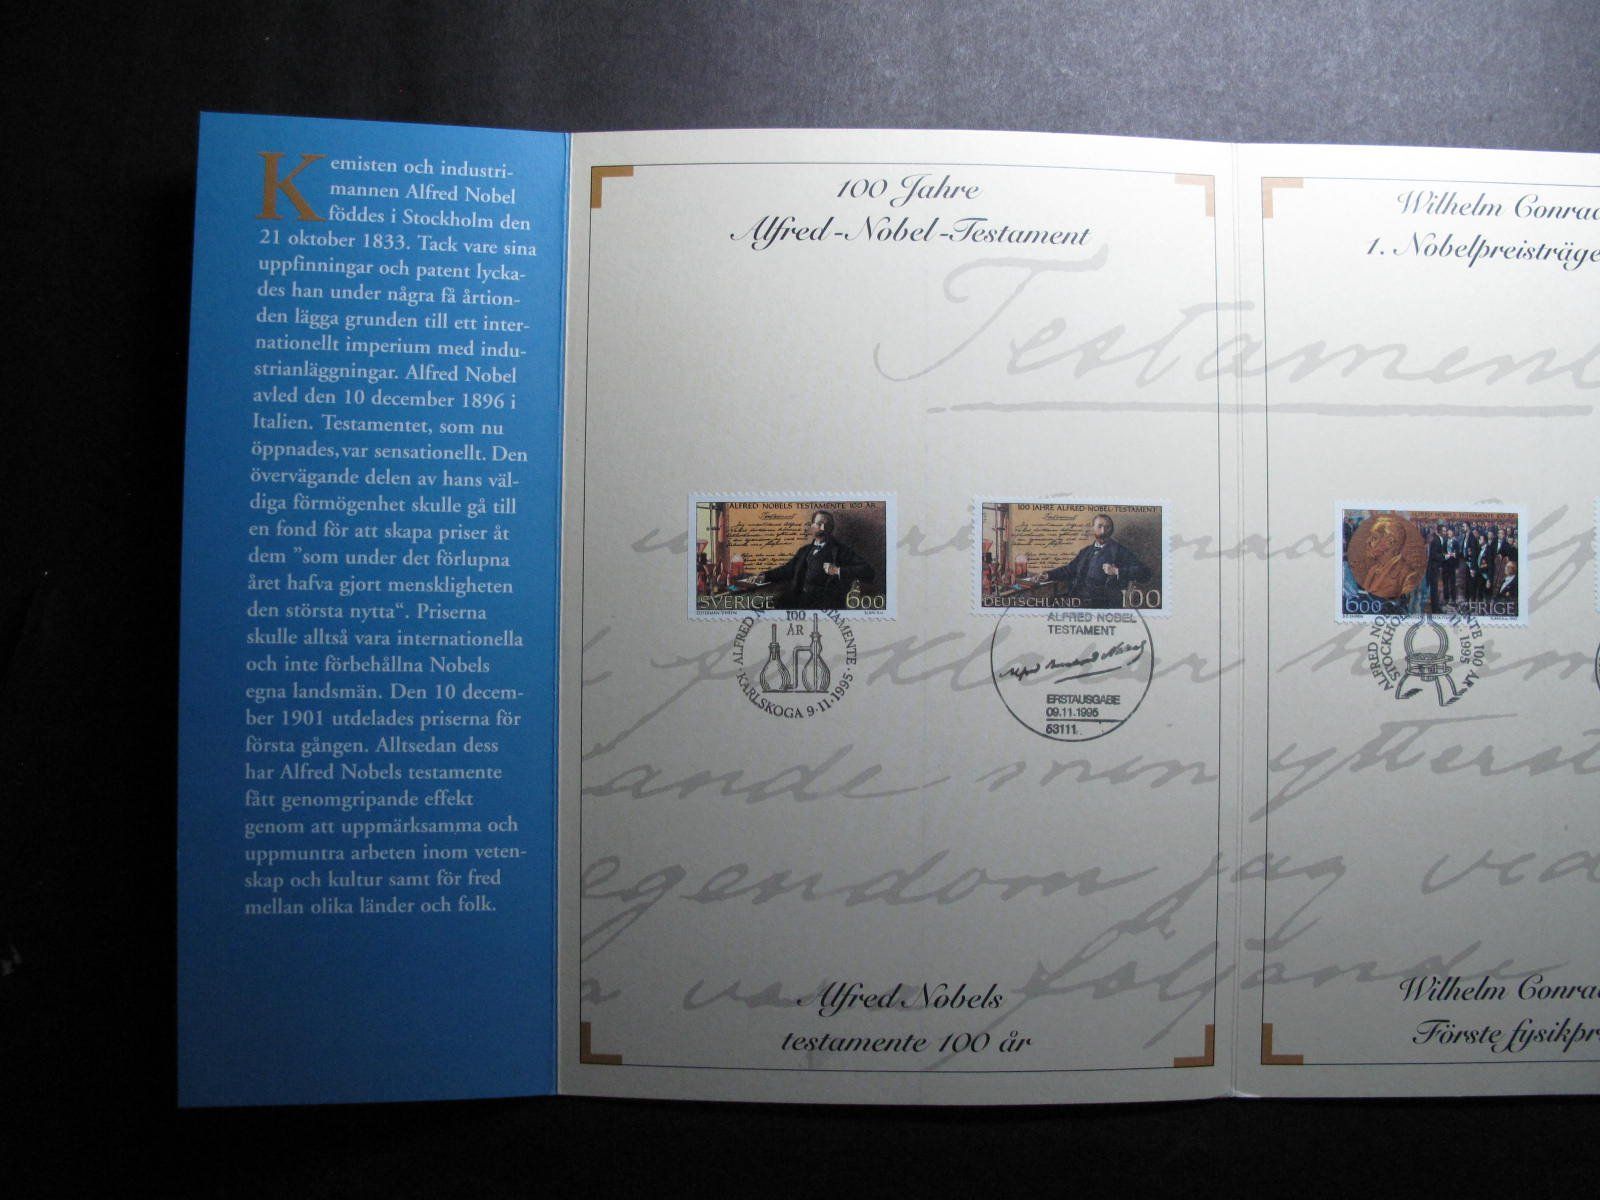 Kemisten och industri-
mannen Alfred Nobel
föddes i Stockholm den
21 oktober 1833. Tack vare sina
uppfinningar och patent lycka-
des han under några få årtion-
den lägga grunden till ett inter-
nationellt imperium med indu-
strianläggningar. Alfred Nobel
avled den 10 december 1896 i
Italien. Testamentet, som nu
öppnades, var sensationellt. Den
övervägande delen av hans väl-
diga förmögenhet skulle gå till
en fond för att skapa priser åt
dem ”som under det förlupna
året hafva gjort menskligheten
den största nytta“. Priserna
skulle alltså vara internationella
och inte förbehållna Nobels
egna landsmän. Den 10 decem-
ber 1901 utdelades priserna för
första gången. Alltsedan dess
har Alfred Nobels testamente
fått genomgripande effekt
genom att uppmärksamma och
uppmuntra arbeten inom veten-
skap och kultur samt för fred
mellan olika länder och folk.
100 Jahre
Alfred-Nobel-Testament
Testament
ALFRED NOBELS TESTAMENTE 100 ÅR
Testament
SVERIGE 600
100 ÅR
KARLSKOGA 9.11.1995
100 JAHRE ALFRED-NOBEL-TESTAMENT
Testament
DEUTSCHLAND 100
ALFRED NOBEL
TESTAMENT
Alfred Bernhard Nobel
ERSTAUSGABE
09.11.1995
53111
men ytterst
egendom jag
följande
Alfred Nobels
testamente 100 år
Wilhelm Conrad
1. Nobelpreisträge
ALFRED NOBELS TESTAMENTE 100 ÅR
600 SVERIGE
ALFRED NO
STOCKHO
1995
100 ÅR
Wilhelm Conra
Förste fysikpr